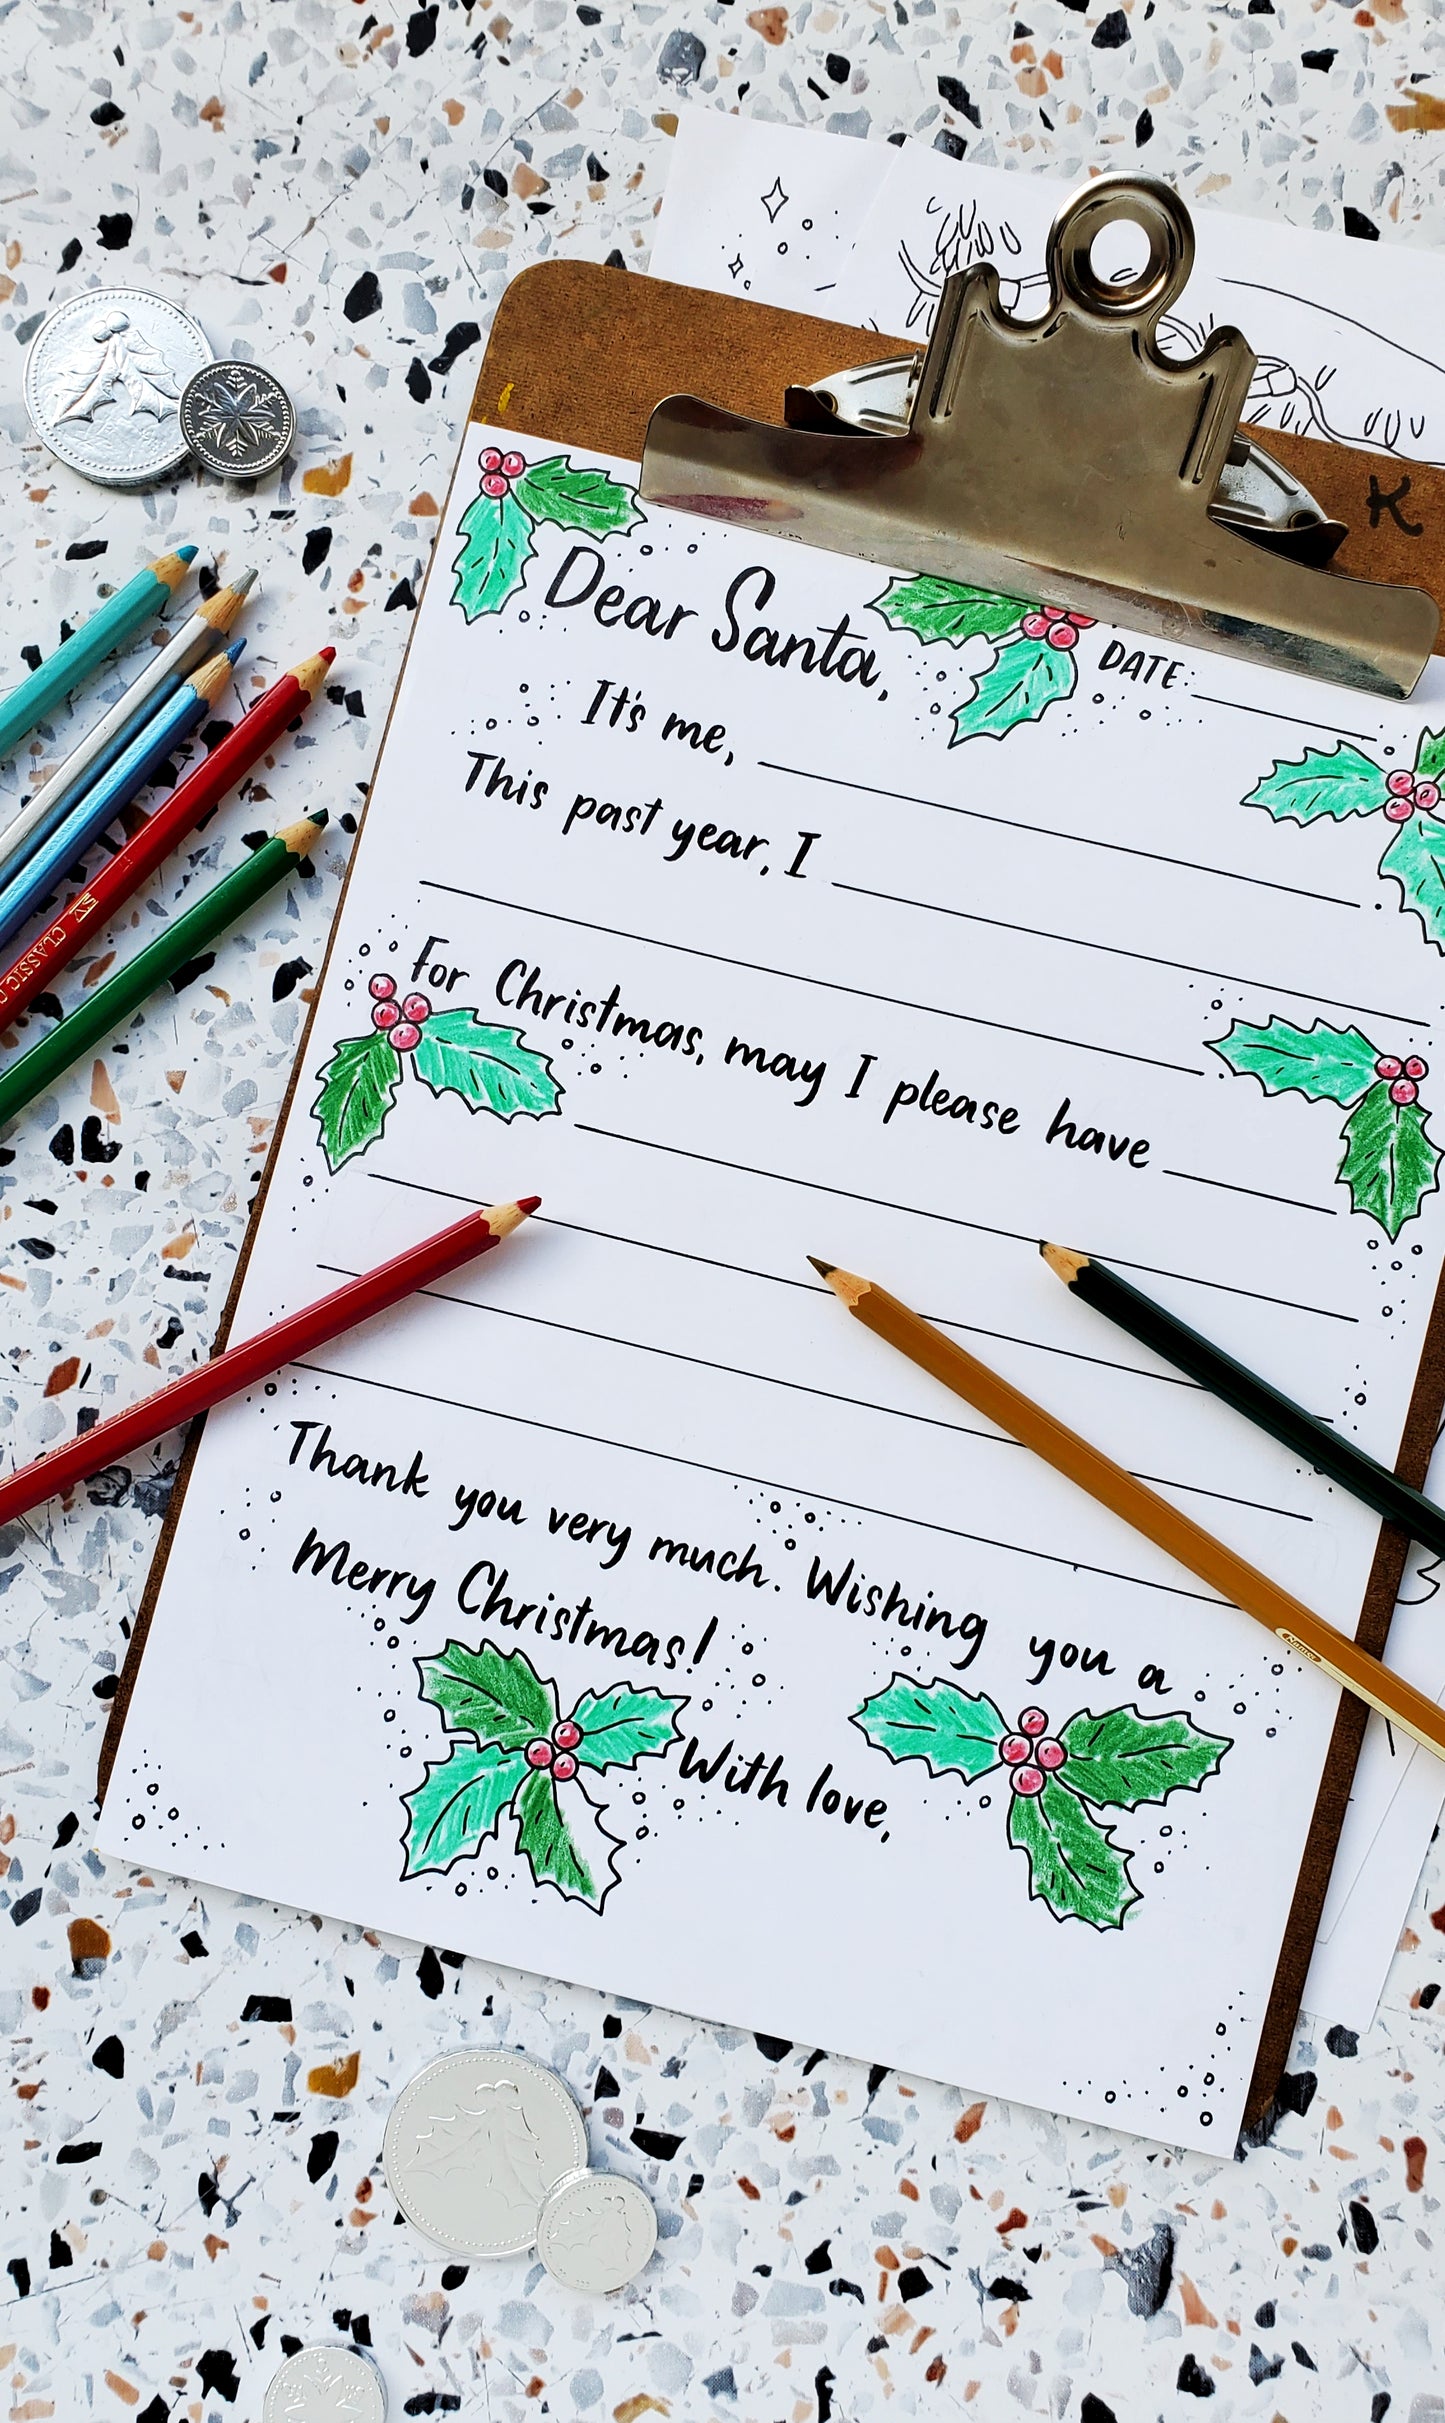 K
Dear Santa,
DATE:
It's me,
This past year, I
For Christmas, may I please have
Thank you very much. Wishing you a
Merry Christmas!
With love,
CLASSIC